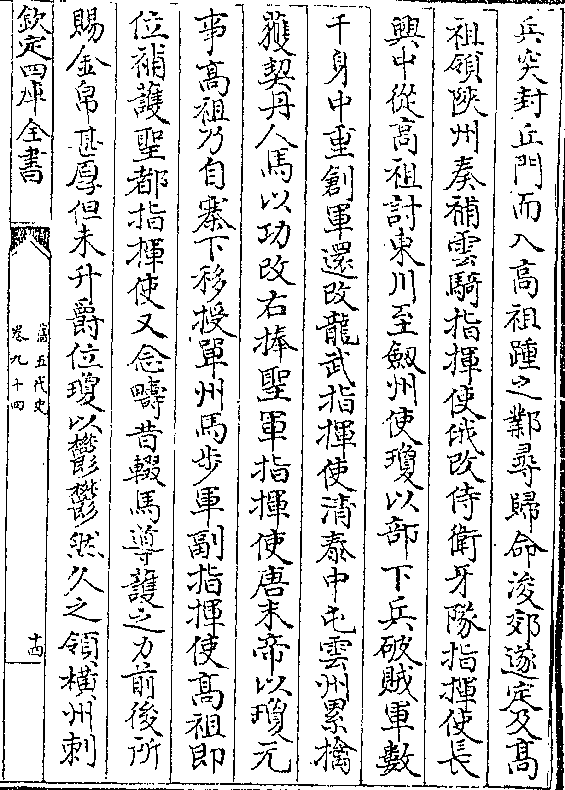 兵突封丘門而入高祖踵之鄴尋歸命浚郊遂定及高
祖領陜州奏補雲騎指揮使俄改侍衛牙隊指揮使長
興中從高祖討東川至劒州使瓊以部下兵破賊軍數
千身中重創軍還改龍武指揮使清泰中屯雲州累擒
獲契丹人馬以功改右捧聖軍指揮使唐末帝以瓊元
事高祖乃自寨下移授單州馬步軍副指揮使高祖即
位補護聖都指揮使又念疇昔輟馬導護之力前後所
賜金帛甚厚但未升爵位瓊以鬱鬱然久之領橫州刺
欽定四庫全書
舊五代史
卷九十四
十四